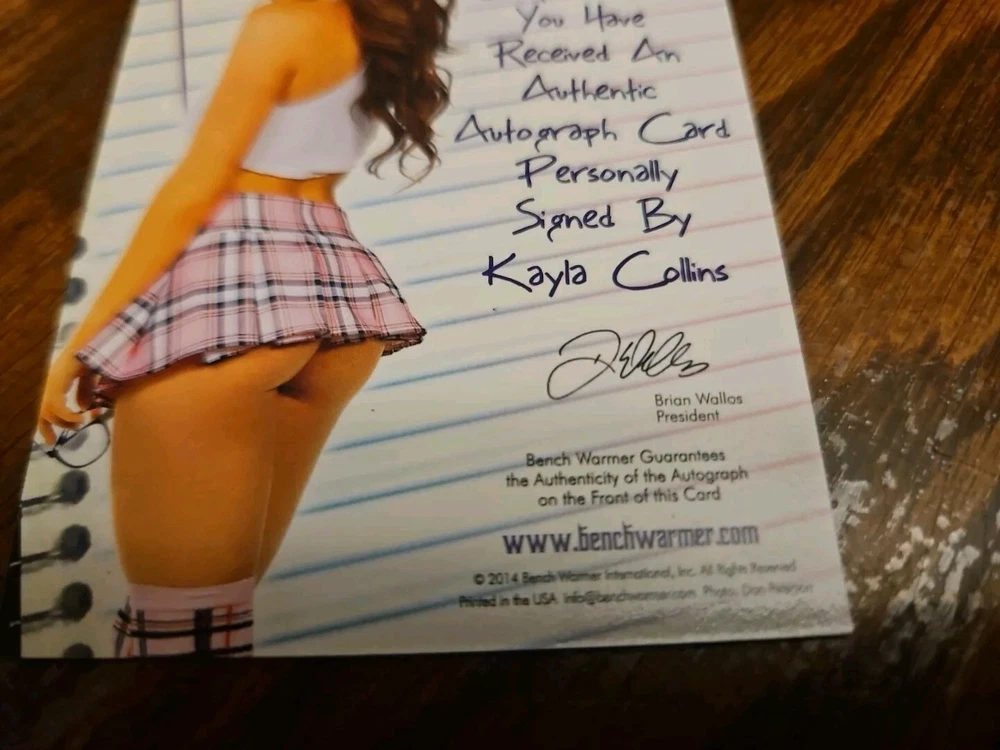 You Have
Received An
Authentic
Autograph Card
Personally
Signed By
Kayla Collins
Brian Wallos
President
Bench Warmer Guarantees
the Authenticity of the Autograph
on the Front of this Card
www.benchwarmer.com
© 2014 Bench Warmer International, Inc. All Rights Reserved
Printed in the USA info@benchwarmer.com Photo: Dan